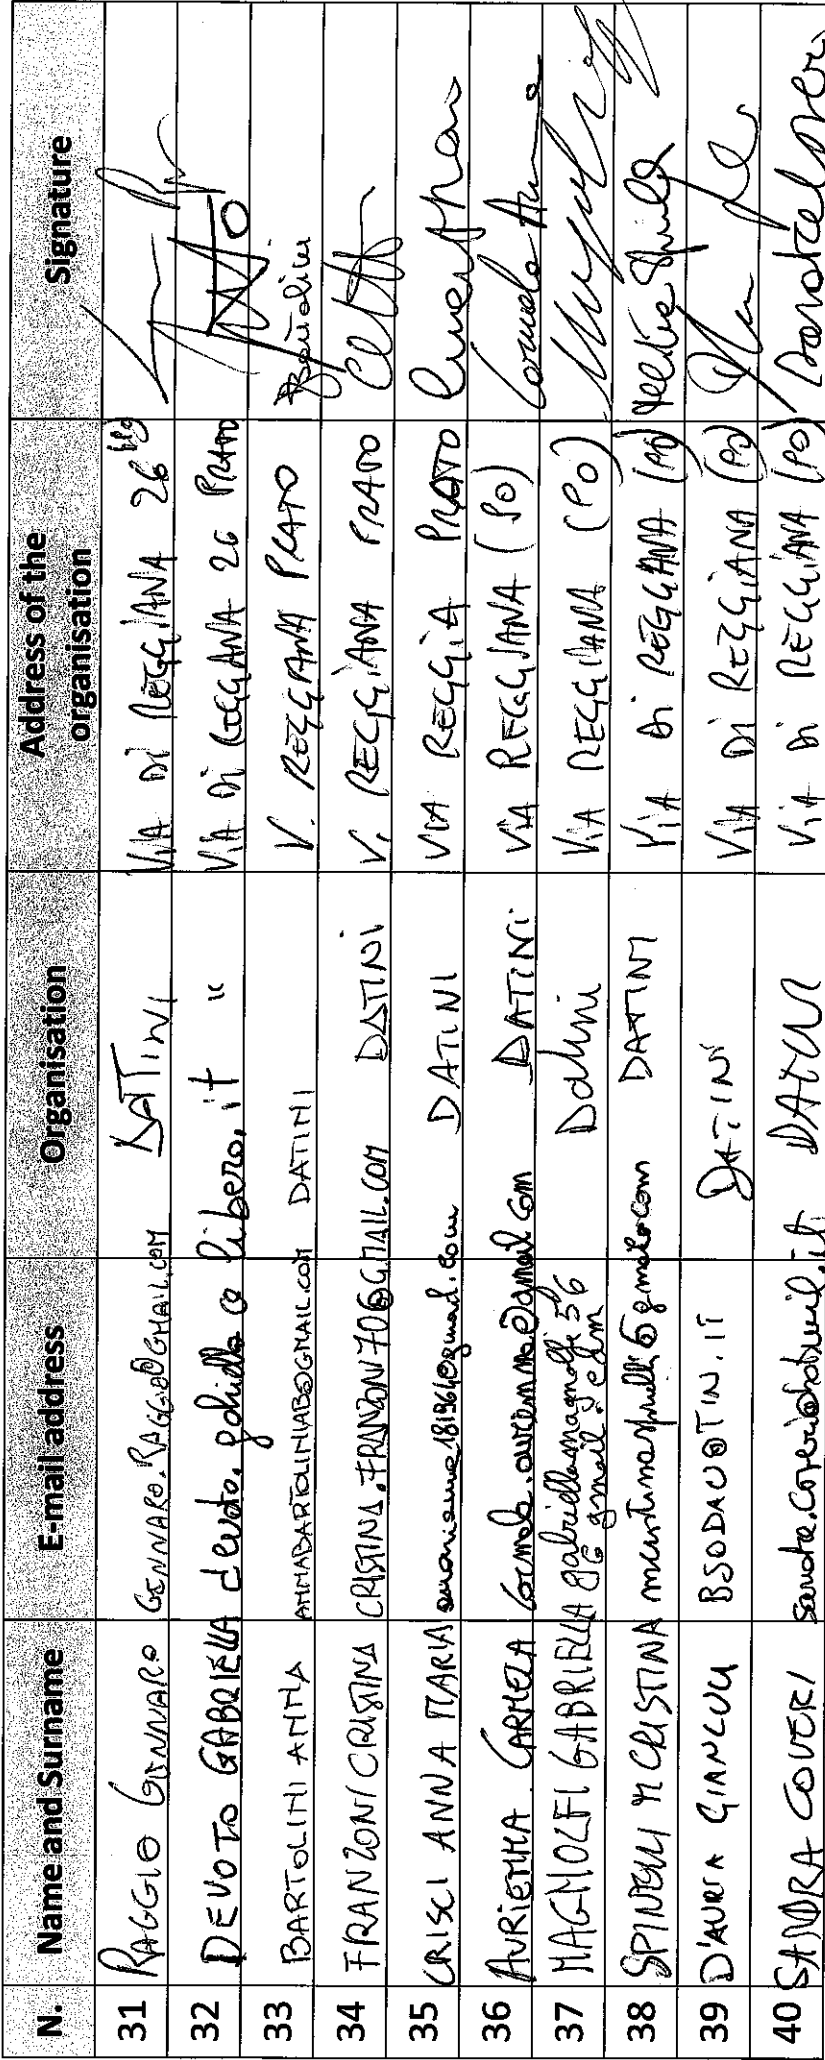 N. Name and Surname E-mail address Organisation Address of the organisation Signature
31 RAGGIO GENNARO GENNARO.RAGGIO@GMAIL.COM DATINI VIA DI REGGIANA 26
32 DEVOTO GABRIELLA devoto.gabriella@libero.it " VIA DI REGGIANA 26 PRATO
33 BARTOLINI ANNA ANNABARTOLINIAB@GMAIL.COM DATINI V. REGGIANA PRATO Bartolini
34 FRANZONI CRISTINA CRISTINA.FRANZONI70@GMAIL.COM DATINI V. REGGIANA PRATO
35 CRISCI ANNA MARIA DATINI VIA REGGIA PRATO
36 AURIEMMA CARMELA carmela.auriemma@gmail.com DATINI VIA REGGIANA (PO)
37 MAGNOLFI GABRIELLA gabriellamagnolfi56@gmail.com Datini VIA REGGIANA (PO)
38 SPINELLI M CRISTINA DATINI VIA DI REGGIANA (PO)
39 D'AURIA GIANLUCA DATINI VIA DI REGGIANA (PO)
40 SANDRA COVERI sandra.coveri@hotmail.it DATINI VIA DI REGGIANA (PO) Sandra Coveri